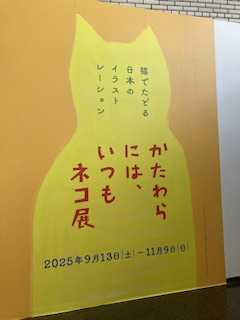 猫でたどる
日本の
イラスト
レーション
かたわら
には、
いつも
ネコ展
2025年9月13日(土)―11月9日(日)